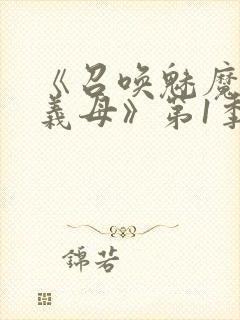 《召唤魅魔
義母》第1季
錦若